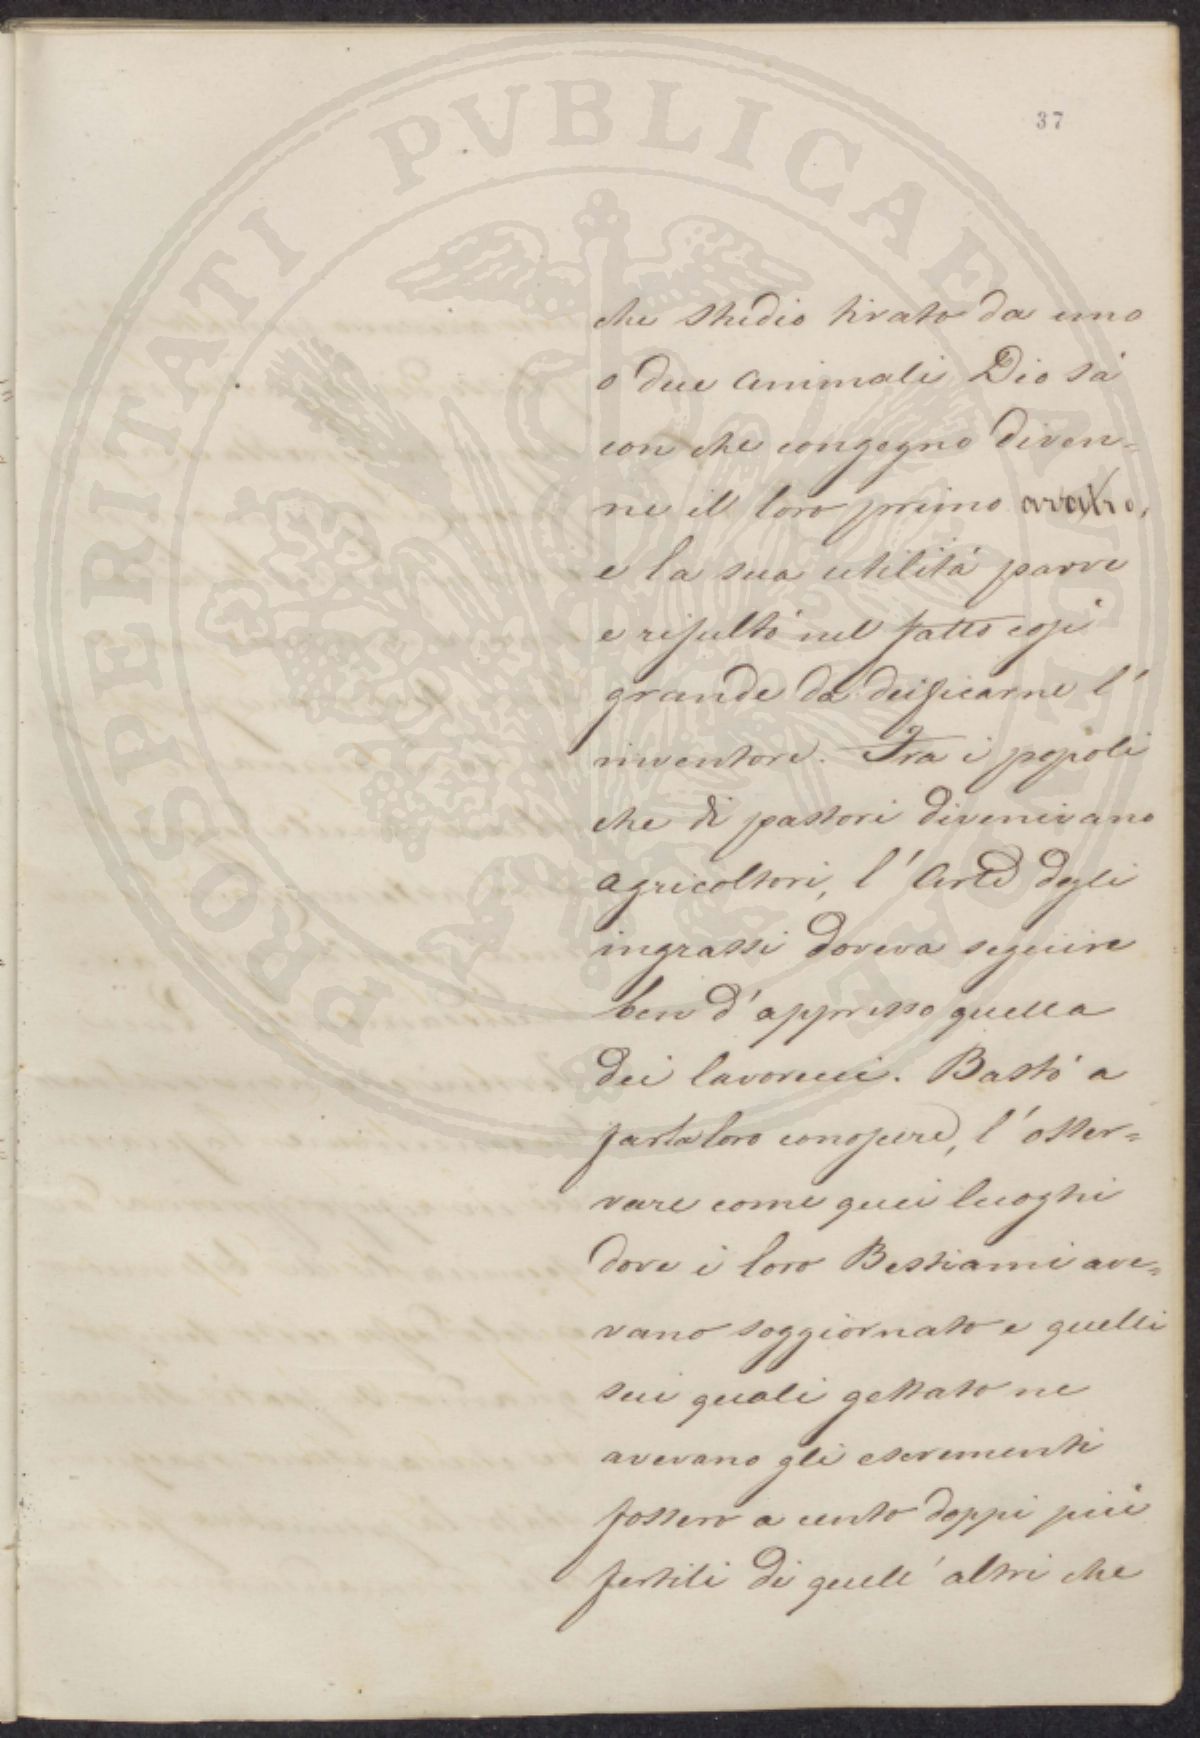 37
che studio tirato da uno
o due animali Dio sà
con che congegno diven=
ne il loro primo aratro,
e la sua utilità parve
e risultò nel fatto così
grande da deificarne l'
inventore. Fra i popoli
che di pastori divenivano
agricoltori, l'Arte degli
ingrassi doveva seguire
ben d'appresso quella
dei lavorecci. Bastò a
farla loro conoscere, l'osser=
vare come quei luoghi
dove i loro Bestiami ave=
vano soggiornato e quelli
sui quali gettato ne
avevano gli escrementi
fossero a cento doppi più
fertili di quell'altri che
PROSPERITATI PVBLICAE AVGENDAE